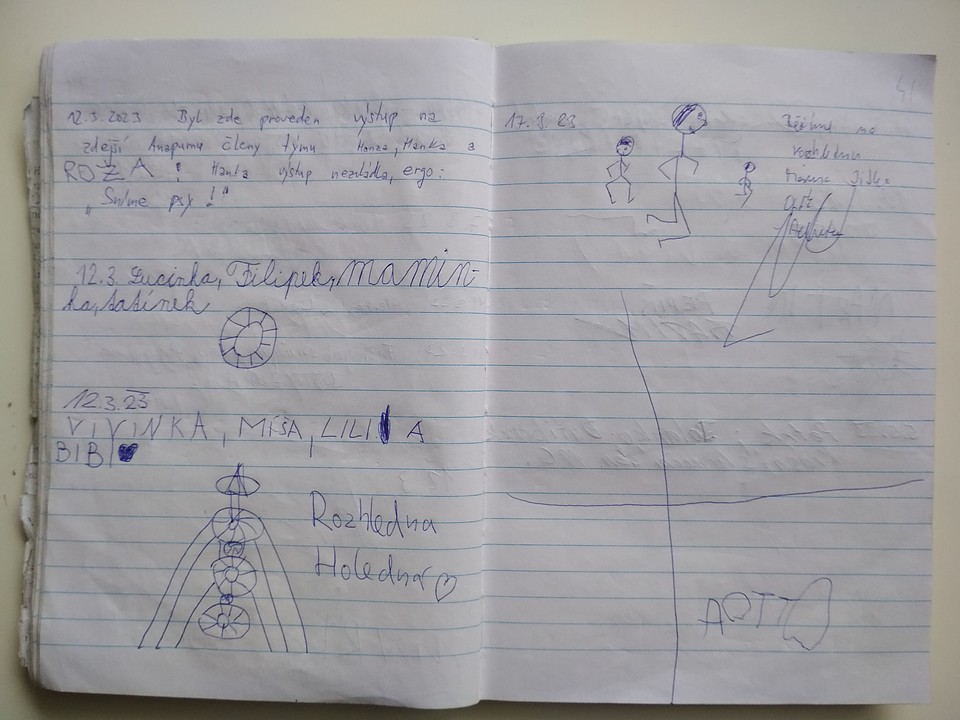 12.3.2023 Byl zde proveden výstup na
zdejší Anapurnu členy týmu Honza, Hanka a
ROZŽA! Hanka výstup nezvládla, ergo:
„Sníme psy!"
12.3. Lucinka, Filipek, mamin-
ka, tatínek
12.3.23
VIVINKA, MÍŠA, LILI A
BIBI
Rozhledna
Holedná
17.3.23
na
rozhlednu
41